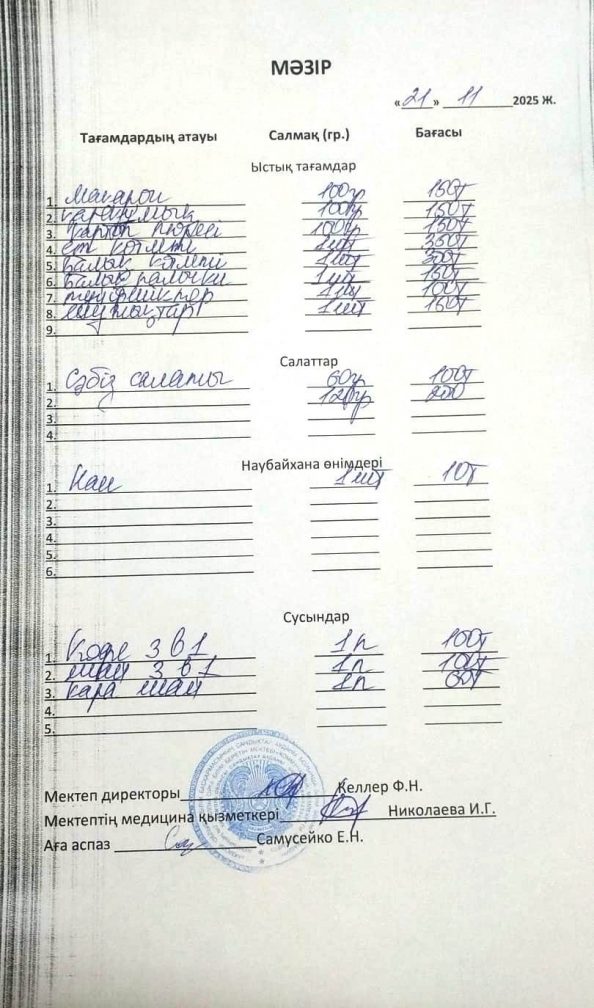 МӘЗІР
«21» 11 2025 Ж.
Тағамдардың атауы Салмақ (гр.) Бағасы
Ыстық тағамдар
1. Макарон 100гр 150т
2. қарақұмық 100гр 150т
3. картоп пюресі 100гр 150т
4. ет котлеті 1шт 350т
5. балық котлеті 1шт 300т
6. балық палочки 1шт 150т
7. 1шт 100т
8. 1шт 150т
9.
Салаттар
1. Сәбіз салаты 60гр 100т
2. 120гр 200
3.
4.
Наубайхана өнімдері
1. Нан 1шт 10т
2.
3.
4.
5.
6.
Сусындар
1. Кофе 3 в 1 1п 100т
2. шай 3 в 1 1п 100т
3. кара шай 1п 60т
4.
5.
Мектеп директоры Келлер Ф.Н.
Мектептің медицина қызметкері Николаева И.Г.
Аға аспаз Самусейко Е.Н.